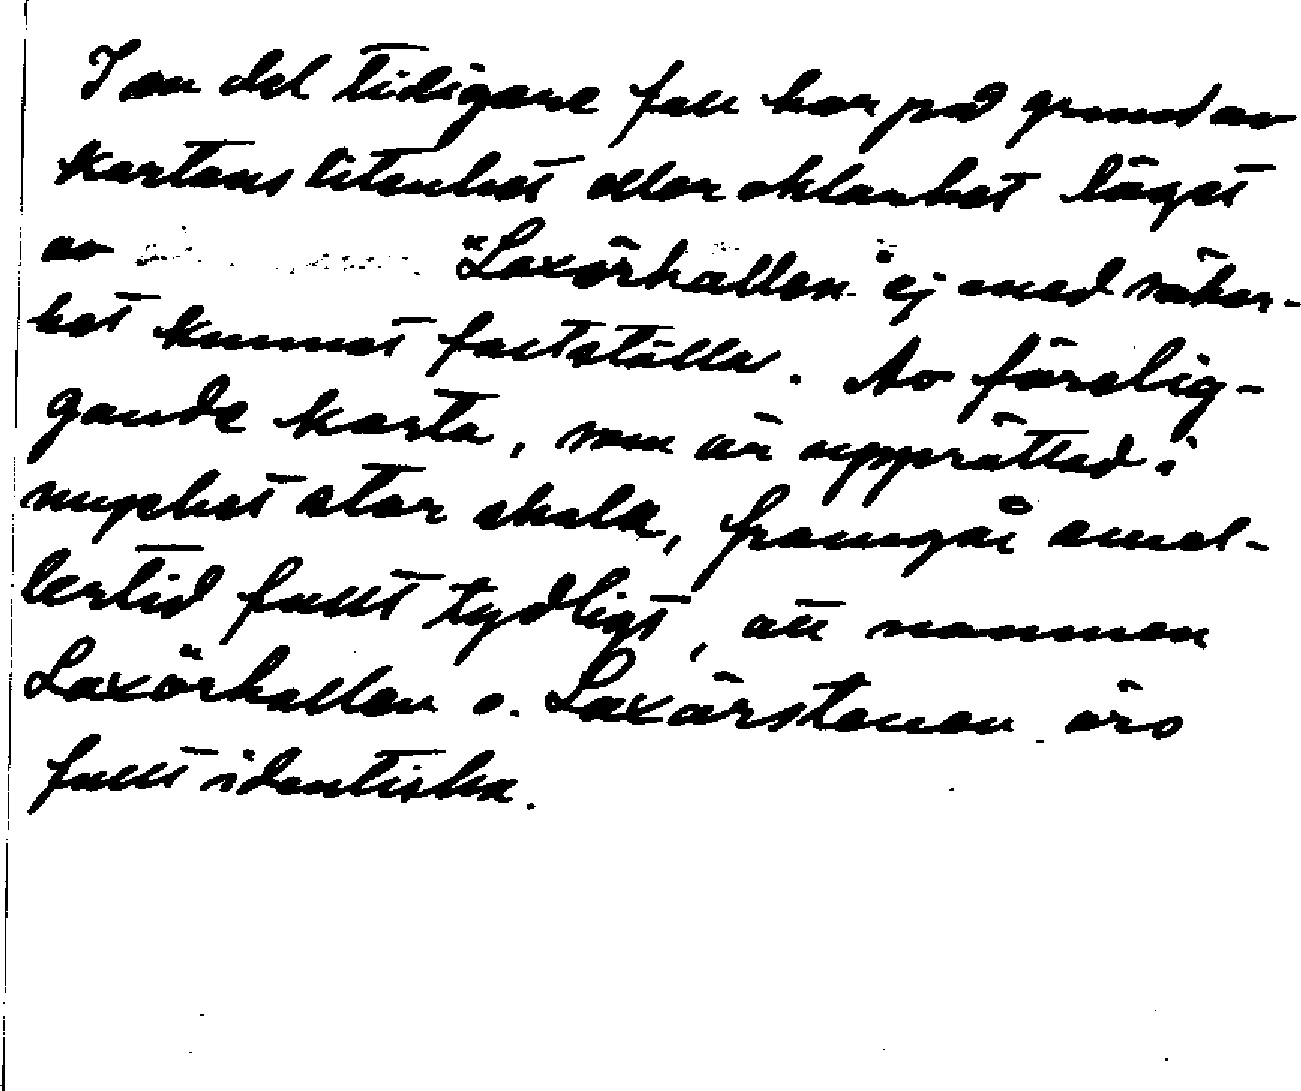 I en del tidigare fall har på grund av
kartans litenhet eller oklarhet läget
av "Laxörhällan" ej med säker-
het kunnat fastställa. Av förelig-
gande karta, som är upprättad i
mycket stor skala, framgår emel-
lertid fullt tydligt, att namnen
Laxörhallen o. Laxörstenen äro
fullt identiska.